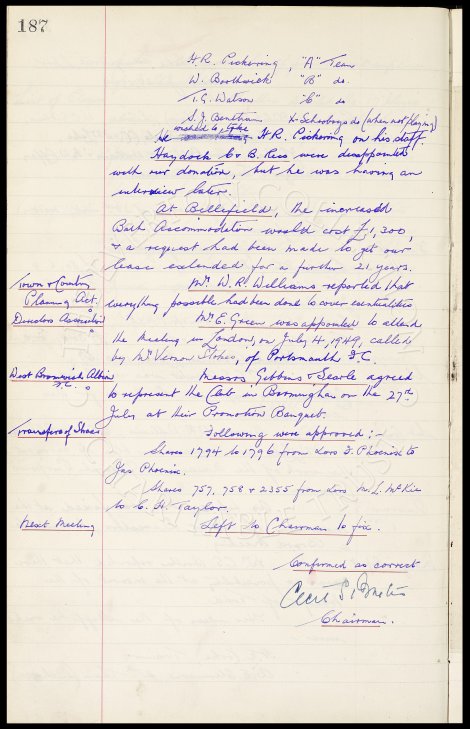 187
H. R. Pickering, "A" Team
W. Borthwick "B" do.
T. G. Watson "C" do
S. J. Bentham X-Schoolboys do (when not playing)
He wished to take H R. Pickering on his staff.
Haydock C & B. Recs were disappointed
with our donation, but he was having an
interview later.
At Bellefield, the increased
Bath Accommodation would cost £1,300,
& a request had been made to get our
lease extended for a further 21 years.
Town & Country
Planning Act.
Mr. W. R. Williams reported that
everything possible had been done to cover eventualities
Directors Association
Mr C. Green was appointed to attend
the meeting in London, on July 4, 1949, called
by Mr Vernon Stokes, of Portsmouth F.C.
West Bromwich Albion
F.C.
Messrs Gibbins & Searle agreed
to represent the Club in Birmingham on the 27th
July at their Promotion Banquet.
Transfers of Shares
Following were approved :-
Shares 1794 to 1796 from Exors J. Phoenix to
Gus Phoenix.
Shares 757, 758 & 2355 from Exors M. L. McKie
to C. H. Taylor.
Next Meeting
Left to Chairman to fix.
Confirmed as correct
Cecil S.
Chairman.